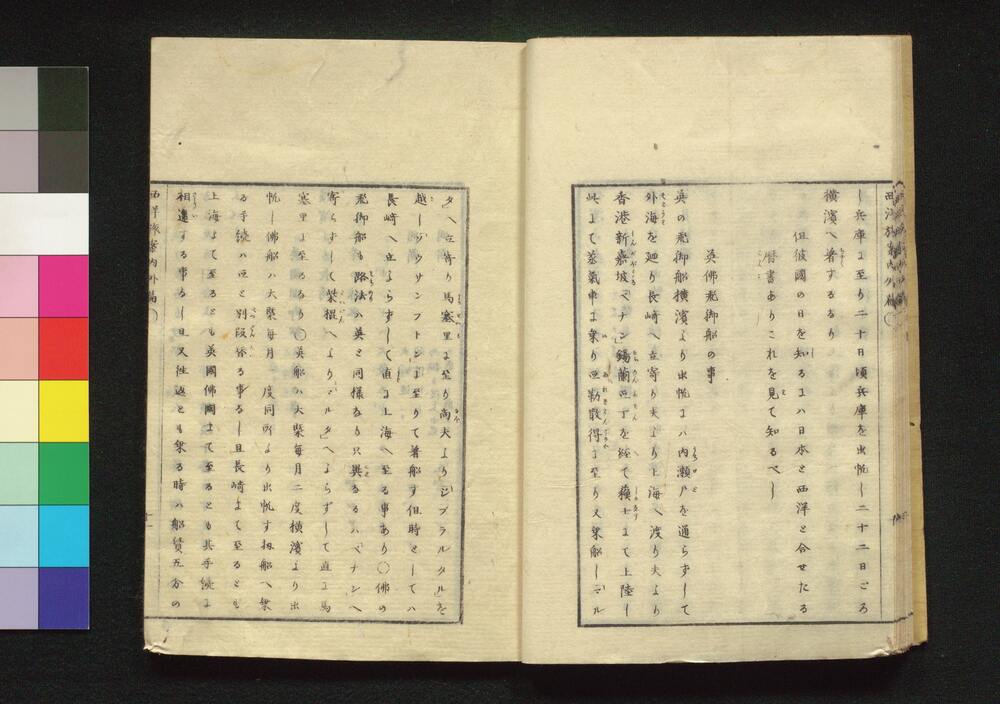 し兵庫に至り二十日頃兵庫を出帆し二十二日ごろ
横濱へ着するなり
但彼國の日を知るにハ日本と西洋と合せたる
暦書ありこれを見て知るべし
英佛飛脚船の事
英の飛脚船横濱より出帆にハ内瀬戸を通らずして
外海を廻り長崎へ立寄り夫より上海へ渡り夫より
香港新嘉坡ペナン錫蘭亞丁を経て蘓士にて上陸し
此にて蒸氣車に乗り亞勒散得に至り又乗船しマル
タへ立寄り馬塞里に至り尚夫よりジブラルタルを
越しソウサンフトンに至りて着船す但時としてハ
長崎へ立よらずして直に上海へ至る事あり〇佛の
飛脚船も路法ハ英と同様なり只異なるハペナンへ
寄らずして柴棍へよりマルタへよらずして直に馬
塞里に至るなり〇英船ハ大槩毎月二度横濱より出
帆し佛船ハ大槩毎月 度同所より出帆す扨船へ乗
る手続ハ亞と別段係る事なし且長崎にて至るとも
上海にて至るとも英國佛國にて至るとも其手続に
相違する事なし且又往返とも乗る時ハ船賃五分の
西洋旅案内外篇